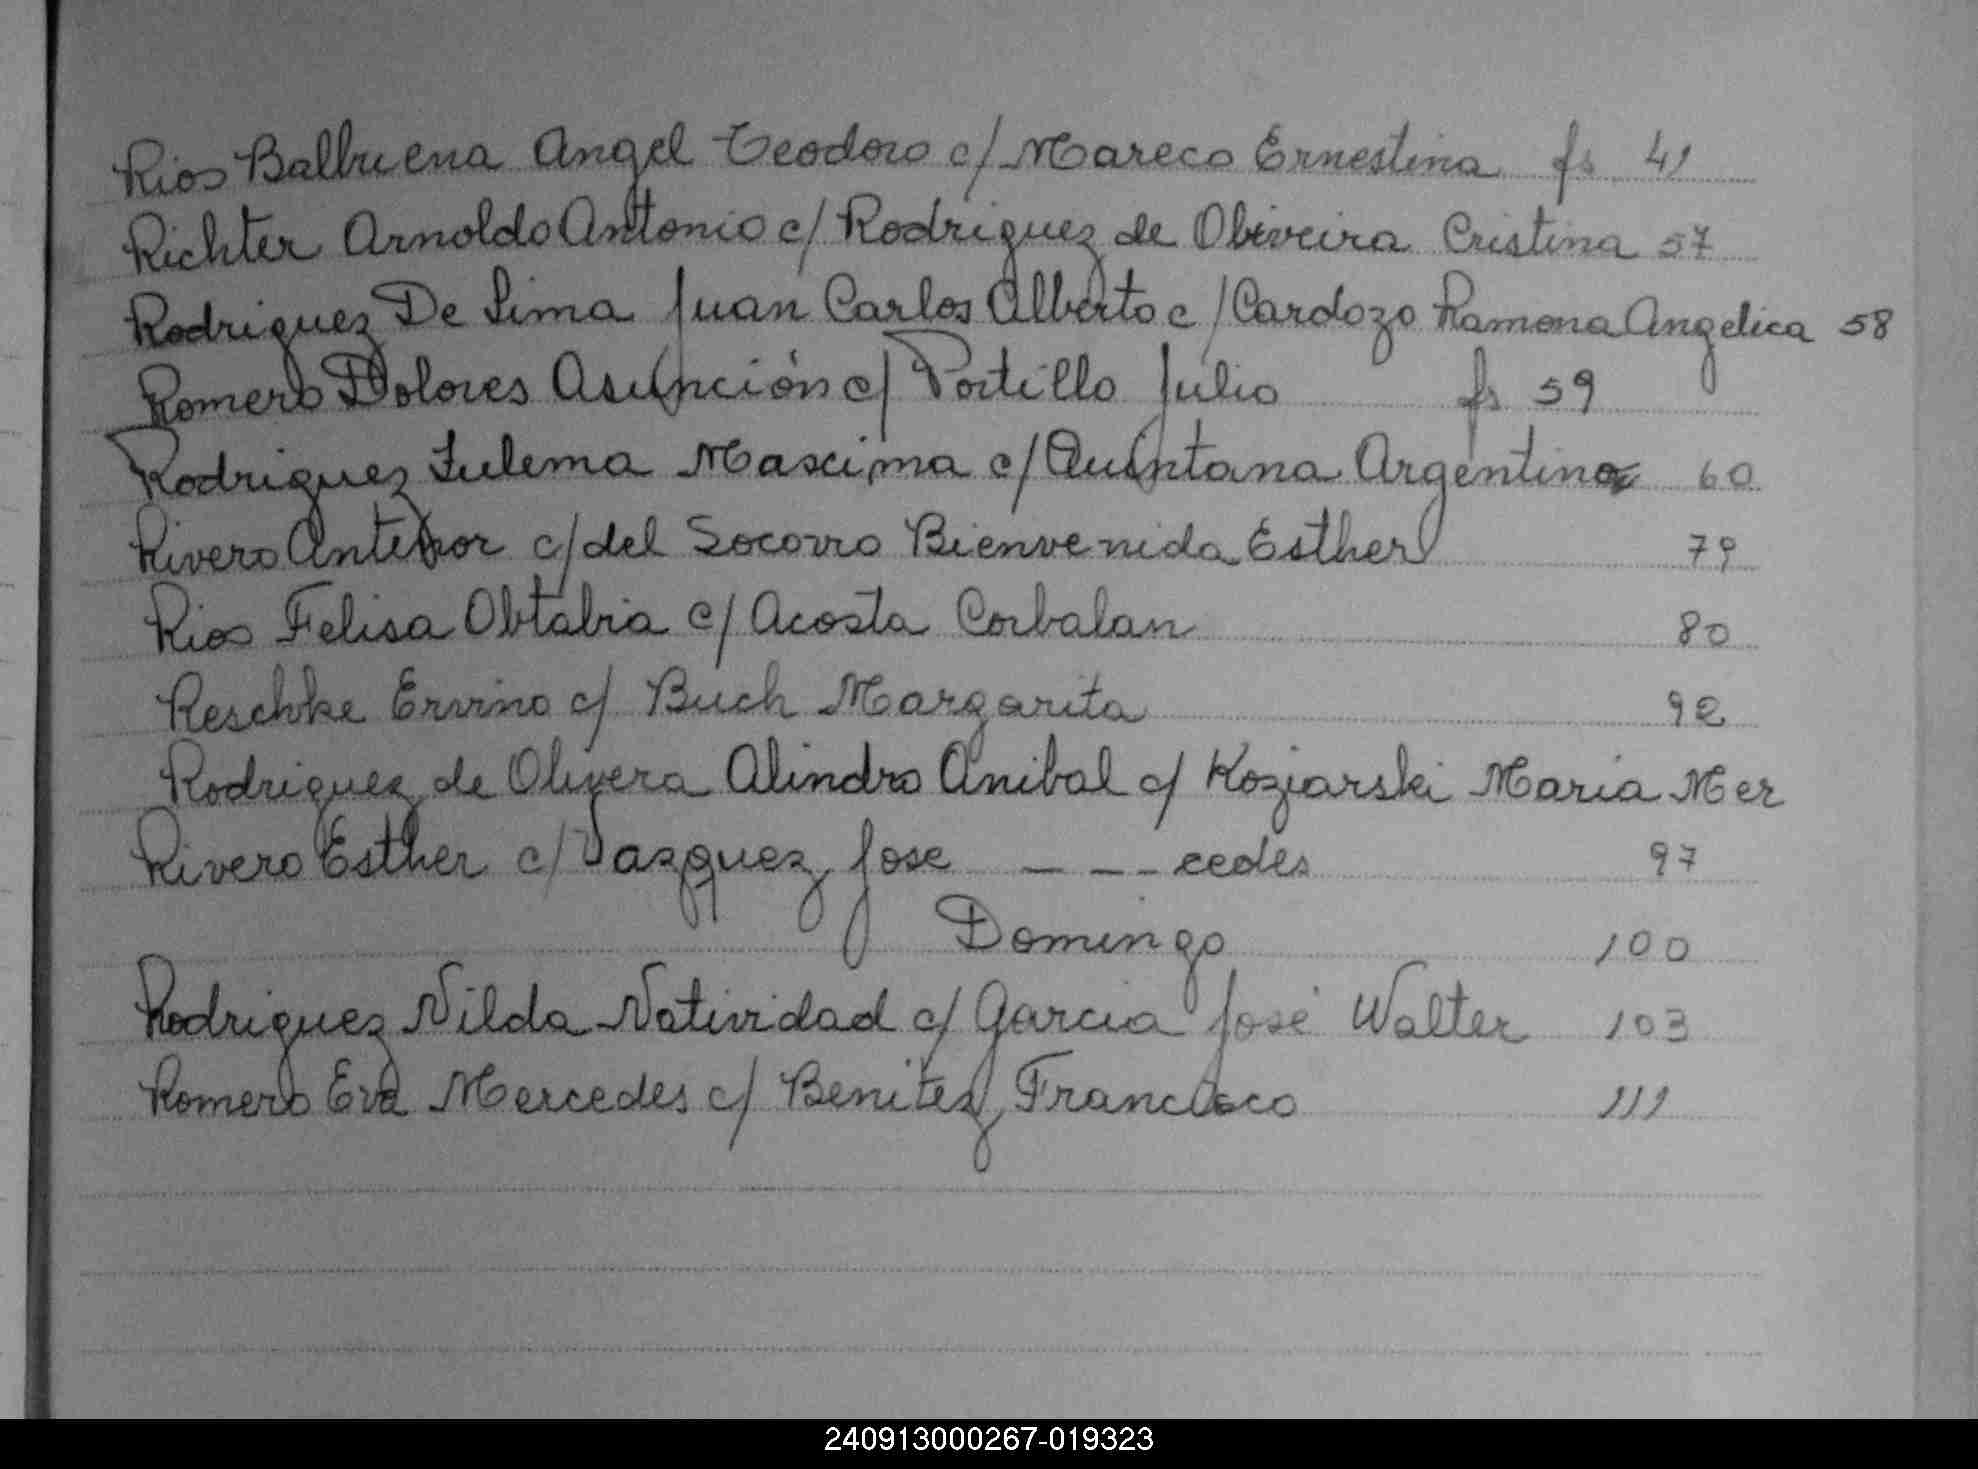 Rios Balbuena Angel Teodoro c/ Mareco Ernestina fs 41
Richter Arnoldo Antonio c/ Rodriguez de Oliveira Cristina 57
Rodriguez De Lima Juan Carlos Alberto c/ Cardozo Ramona Angelica 58
Romero Dolores Asunción c/ Portillo Julio fs 59
Rodriguez Zulema Maxima c/ Quintana Argentino 60
Rivero Antenor c/ del Socorro Bienvenida Esther 79
Rios Felisa Obtabia c/ Acosta Corbalan 80
Reschke Ervino c/ Buch Margarita 92
Rodriguez de Olivera Alindro Anibal c/ Koziarski Maria Mer
Rivero Esther c/ Vazquez Jose _ _ _ cedes 97
Domingo 100
Rodriguez Nilda Natividad c/ Garcia José Walter 103
Romero Eva Mercedes c/ Benitez Francisco 111
240913000267-019323